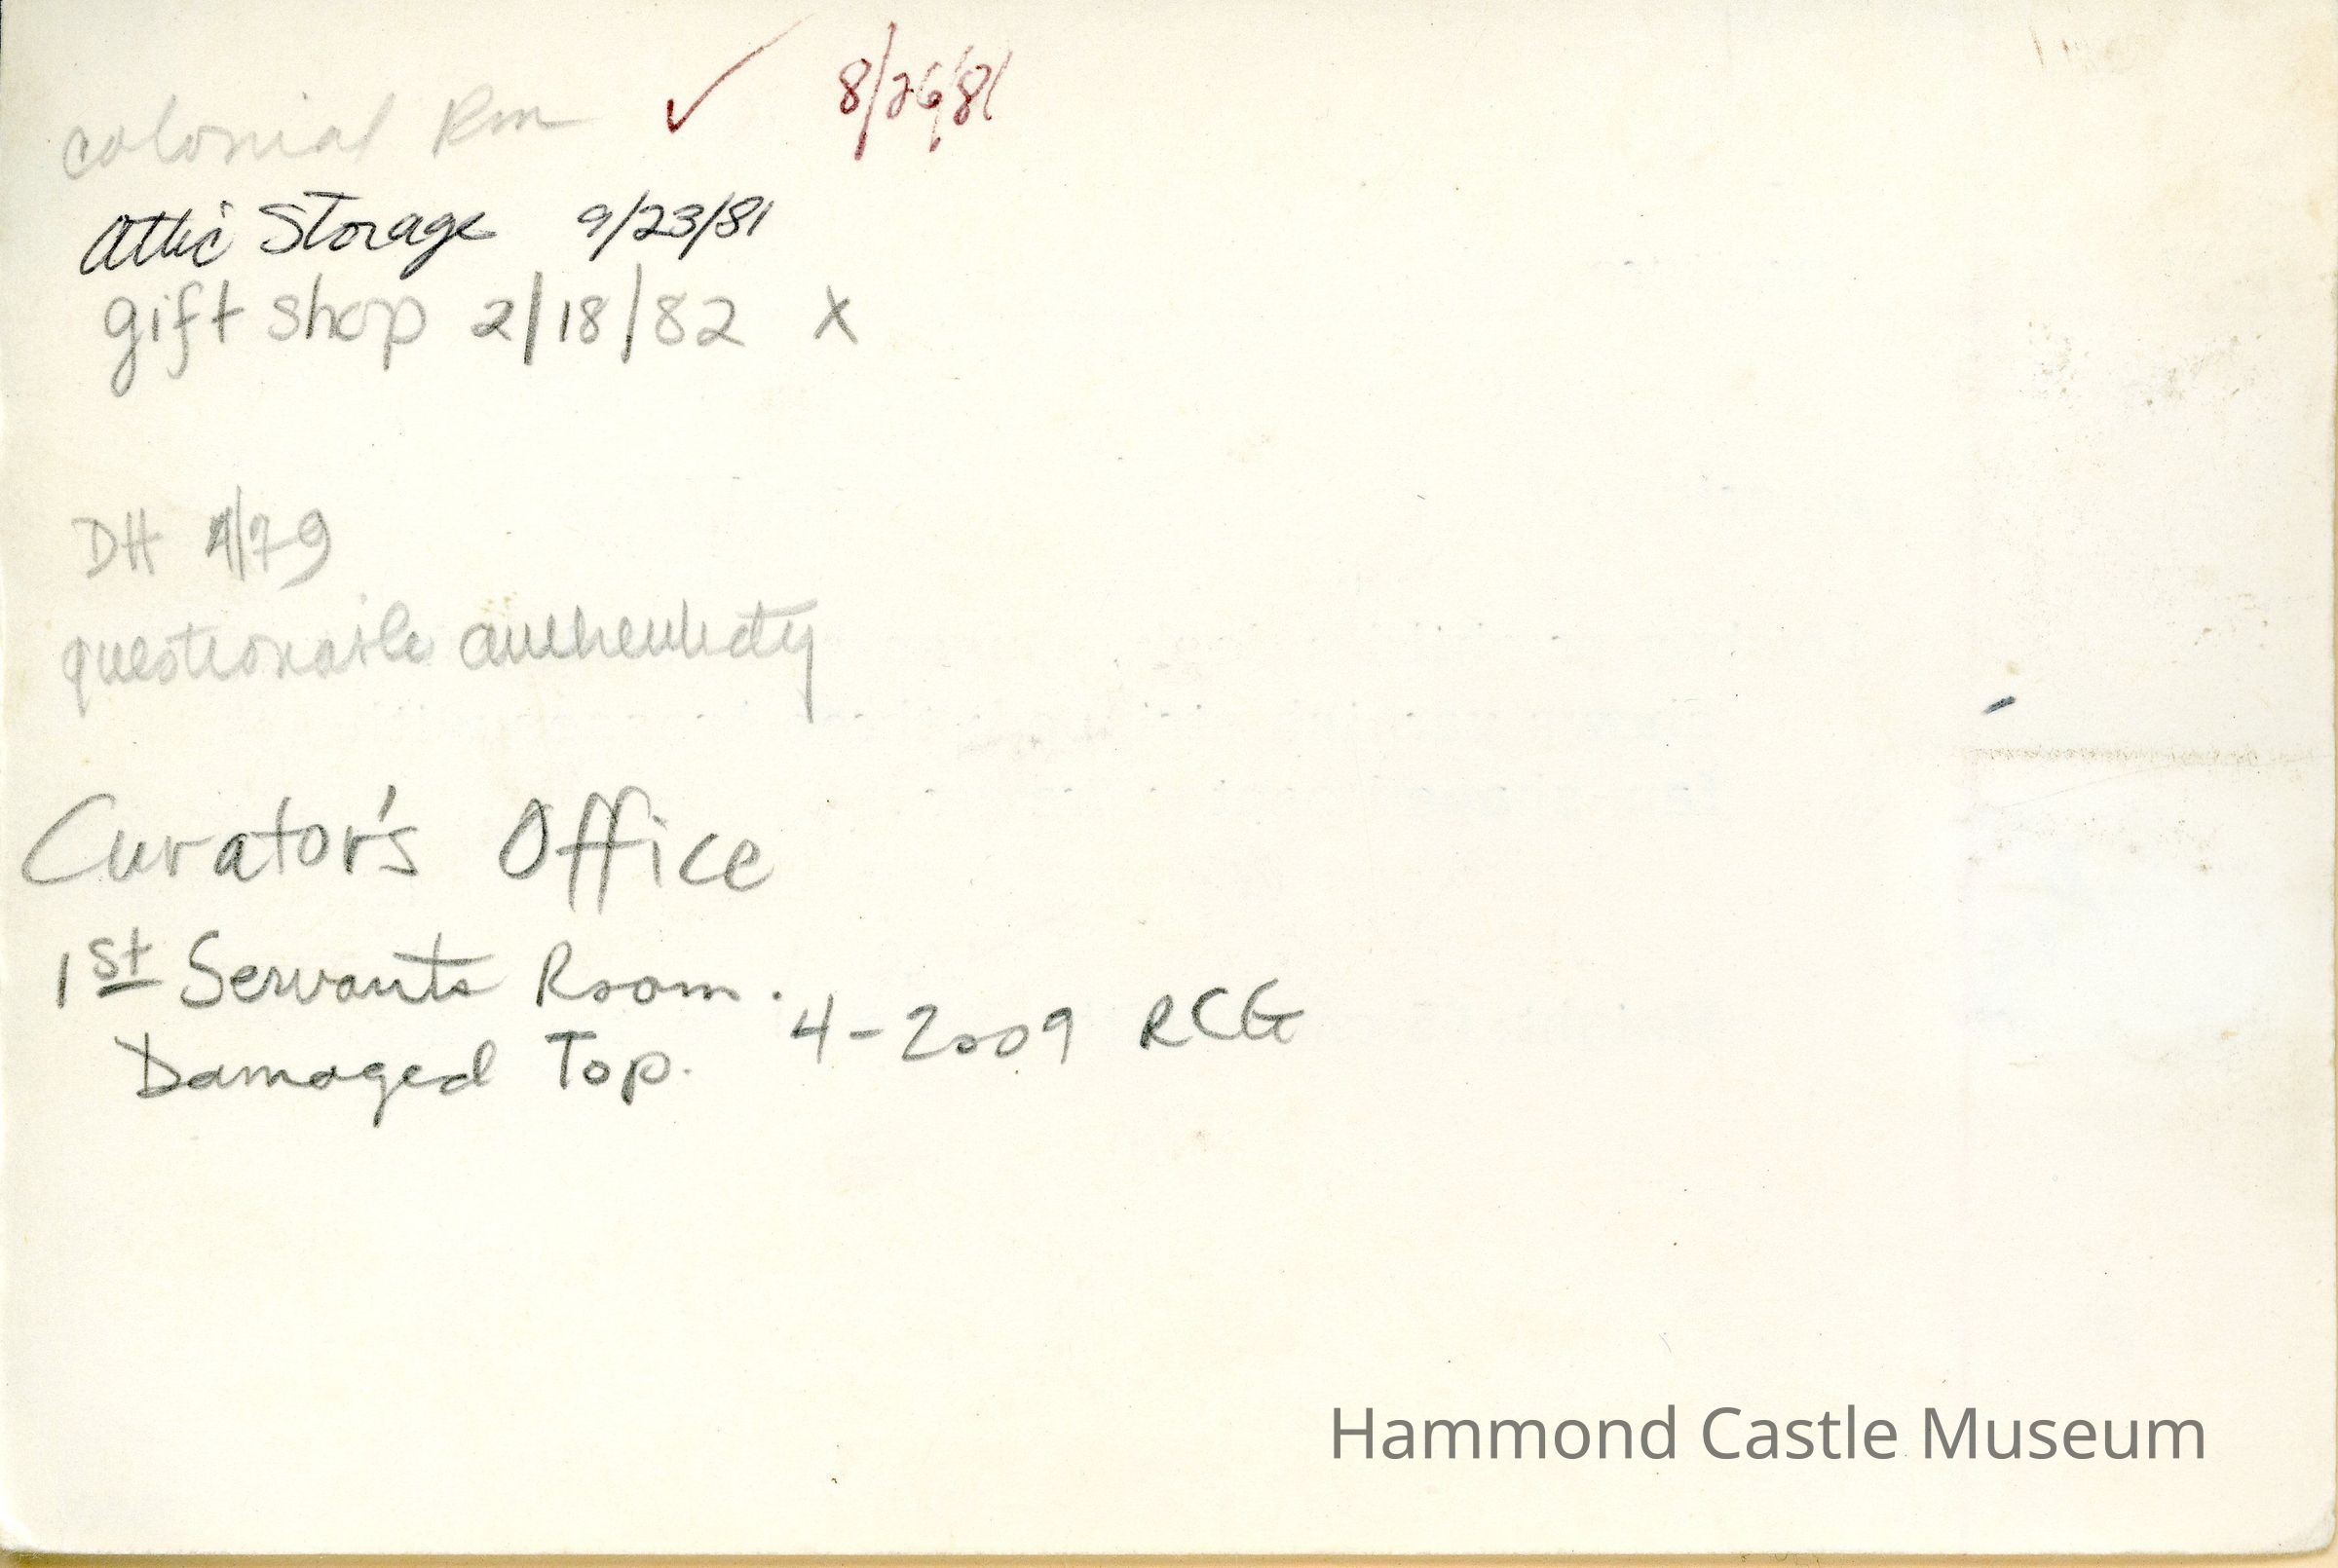 colonial Rm ✓ 8/26/81
Attic Storage 9/23/81
gift shop 2/18/82 x
DH 4/79
questionable authenticity
Curator's Office
1st Servants Room.
4-2009 RCG
Damaged Top.
Hammond Castle Museum